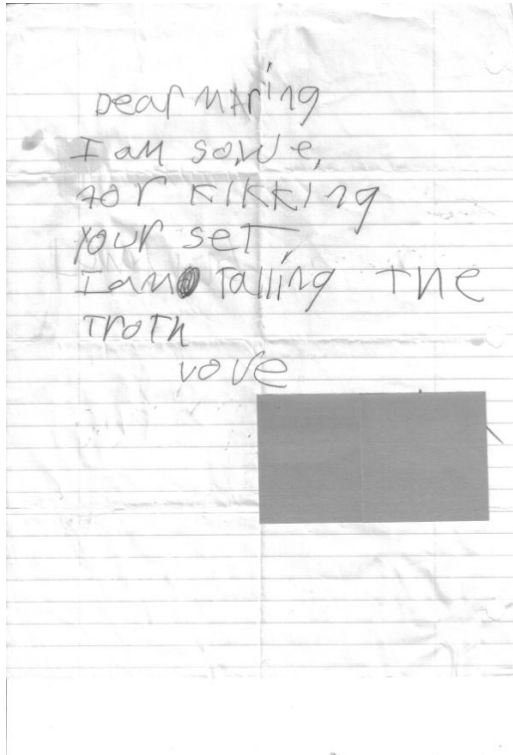 Dear Maring
I am sowe,
for kikking
your set
I am talling the
troth
vove